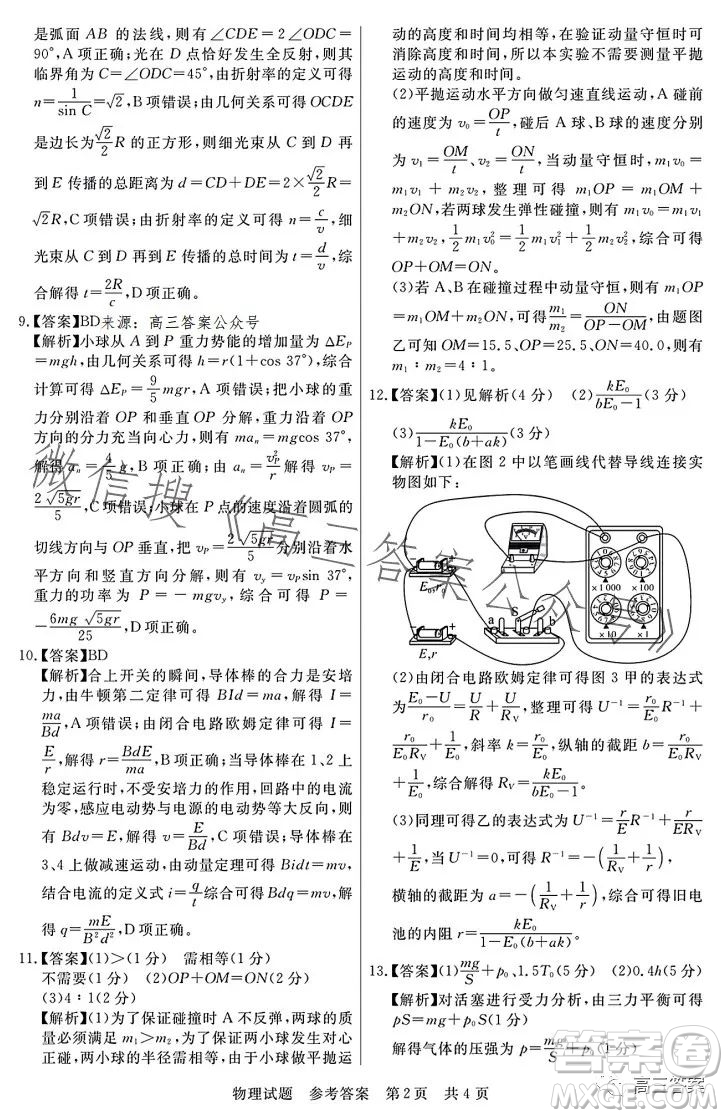 是弧面 AB 的法线,则有∠CDE=2∠ODC=
90°,A项正确;光在 D 点恰好发生全反射,则其
临界角为 C=∠ODC=45°,由折射率的定义可得
n=1/sin C=√2,B项错误;由几何关系可得 OCDE
是边长为√2/2 R 的正方形,则细光束从 C 到 D 再
到 E 传播的总距离为 d=CD+DE=2×√2/2 R=
√2R,C项错误;由折射率的定义可得 n=c/v,细
光束从 C 到 D 再到 E 传播的总时间为 t=d/v,综
合解得 t=2R/c,D项正确。
9.【答案】BD来源:高三答案公众号
【解析】小球从 A 到 P 重力势能的增加量为 ΔEP=
mgh,由几何关系可得 h=r(1+cos 37°),综合
计算可得 ΔEP=9/5 mgr,A项错误;把小球的重
力分别沿着 OP 和垂直 OP 分解,重力沿着 OP
方向的分力充当向心力,则有 man=mgcos 37°,
解得 an=4/5 g,B项正确;由 an=vP²/r 解得 vP=
2√5gr/5,C项错误;小球在 P 点的速度沿着圆弧的
切线方向与 OP 垂直,把 vP=2√5gr/5 分别沿着水
平方向和竖直方向分解,则有 vy=vPsin 37°,
重力的功率为 P=-mgvy,综合可得 P=
-6mg√5gr/25,D项正确。
10.【答案】BD
【解析】合上开关的瞬间,导体棒的合力是安培
力,由牛顿第二定律可得 BId=ma,解得 I=
ma/Bd,A项错误;由闭合电路欧姆定律可得 I=
E/r,解得 r=BdE/ma,B项正确;当导体棒在1、2上
稳定运行时,不受安培力的作用,回路中的电流
为零,感应电动势与电源的电动势大小相等,则
有 Bdv=E,解得 v=E/Bd,C项错误;导体棒在
3、4上做减速运动,由动量定理可得 Bidt=mv,
结合电流的定义式 i=q/t 综合可得 Bdq=mv,解
得 q=mE/B²d²,D项正确。
11.【答案】(1)>(1分) 需相等(1分)
不需要(1分) (2)OP+OM=ON(2分)
(3)4∶1(2分)
【解析】(1)为了保证碰撞时 A 不反弹,两球的质
量必须满足 m1>m2,为了保证两小球发生对心
正碰,两小球的半径需相等,由于小球做平抛运
动的高度和时间均相等,在验证动量守恒时可
消除高度和时间,所以本实验不需要测量平抛
运动的高度和时间。
(2)平抛运动水平方向做匀速直线运动,A碰前
的速度为 v0=OP/t,碰后 A 球、B 球的速度分别
为 v1=OM/t、v2=ON/t,当动量守恒时,m1v0=
m1v1+m2v2,整理可得 m1OP=m1OM+
m2ON;若两球发生弹性碰撞,则有 m1v0=m1v1
+m2v2,1/2 m1v0²=1/2 m1v1²+1/2 m2v2²,综合可得
OP+OM=ON。
(3)若 A、B在碰撞过程中动量守恒,则有 m1OP
=m1OM+m2ON,综合可得 m1/m2=ON/(OP-OM),由题图
乙可知 OM=15.5、OP=25.5、ON=40.0,则有
m1∶m2=4∶1。
12.【答案】(1)见解析(4分) (2)kE0/(bE0-1)(3分)
(3)kE0/(1-E0(b+ak))(3分)
【解析】(1)在图2中以笔画线代替导线连接实
物图如下:
E0,r0
E,r
a
S
b
×1000
×100
×10
×1
(2)由闭合电路欧姆定律可得图3甲的表达式
为(E0-U)/r0=U/R+U/RV,整理可得 U⁻¹=r0/E0 R⁻¹+
r0/(E0RV)+1/E0,斜率 k=r0/E0,纵轴的截距 b=r0/(E0RV)
+1/E0,综合解得 RV=kE0/(bE0-1)。
(3)同理可得乙的表达式为 U⁻¹=r/E R⁻¹+r/(ERV)
+1/E,当 U⁻¹=0,可得 R⁻¹=-(1/RV+1/r),则
横轴的截距为 a=-(1/RV+1/r),综合可得旧电
池的内阻 r=kE0/(1-E0(b+ak))。
13.【答案】(1)mg/S+p0、1.5T0(5分) (2)0.4h(5分)
【解析】对活塞进行受力分析,由三力平衡可得
pS=mg+p0S(1分)
解得气体的压强为 p=mg/S+p0(1分)
物理试题 参考答案 第2页 共4页
微信搜《高三答案公众号》
高三答案